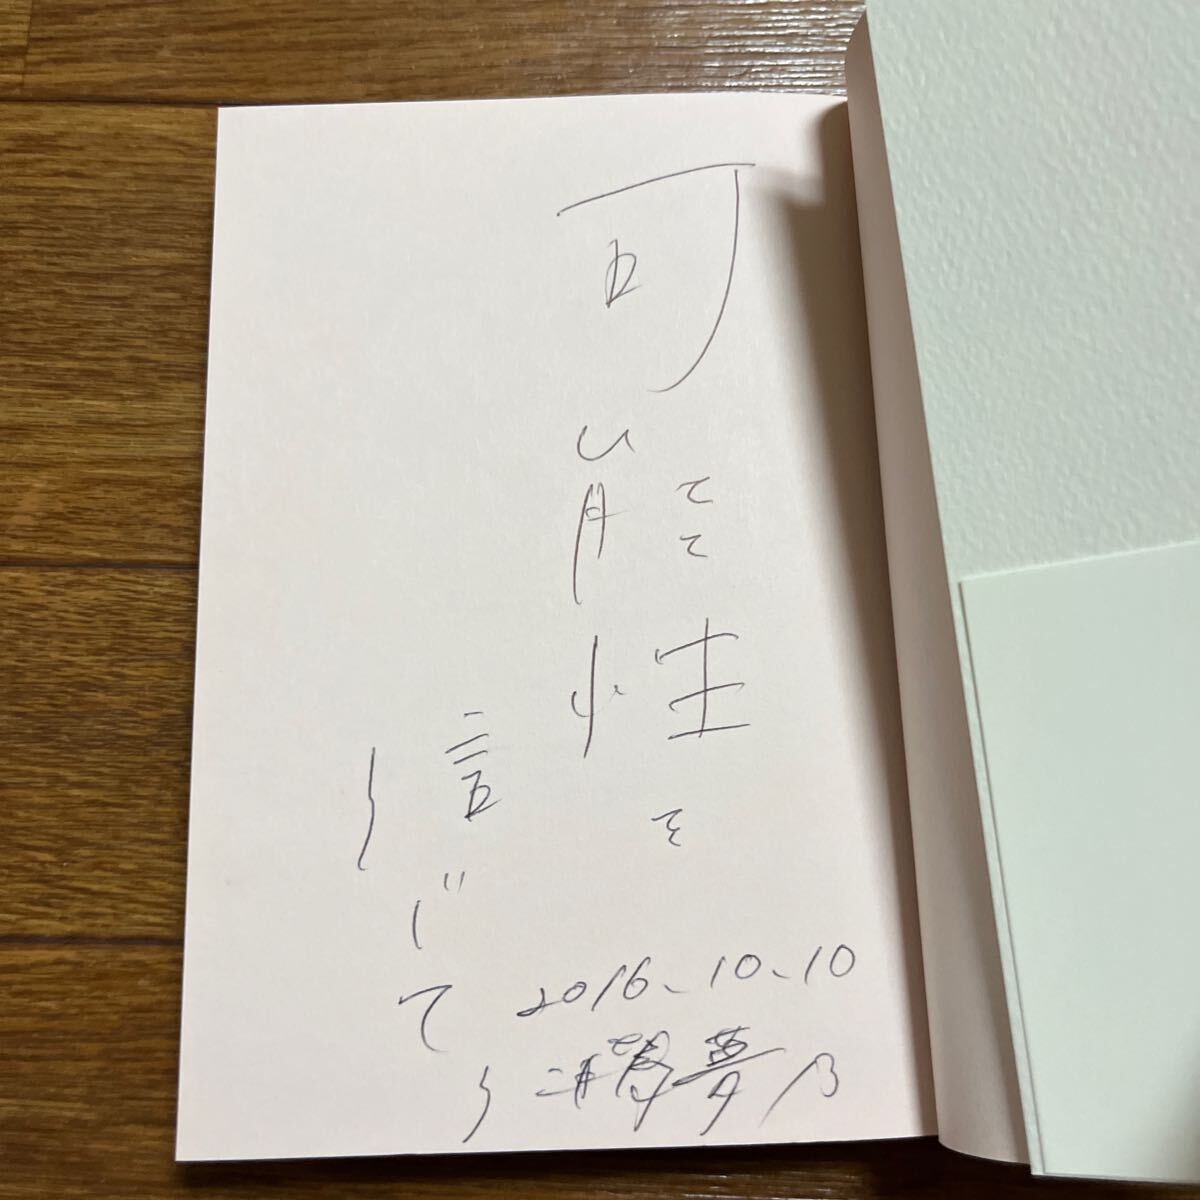 可能性を
信じて
2016、10、10
夢乃